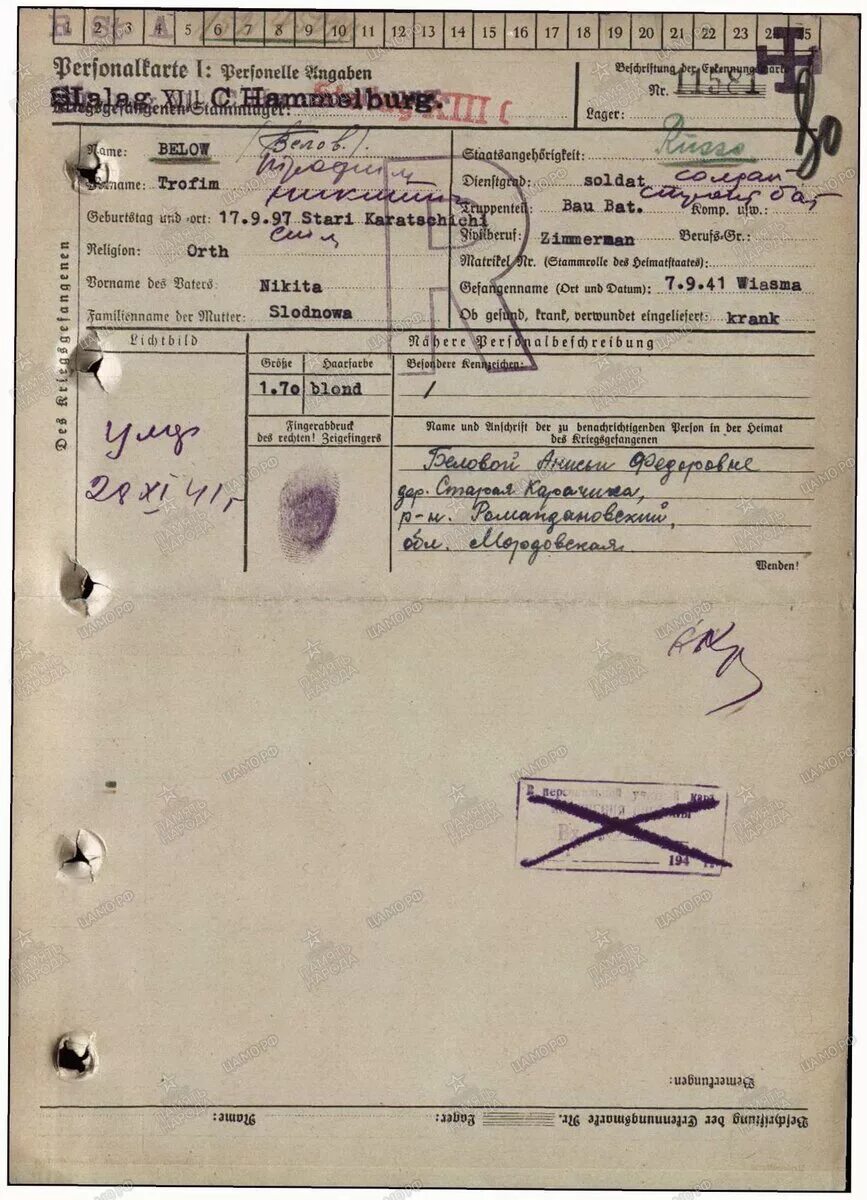 1 2 3 4 5 6 7 8 9 10 11 12 13 14 15 16 17 18 19 20 21 22 23 24 25
Personalkarte I: Personelle Angaben
Beschriftung der Erkennungsmarke
Stalag XIII C Hammelburg.
Stalag XIII C
Kriegsgefangenen-Stammlager:
Nr. 11581
Lager:
Des Kriegsgefangenen
Name: BELOW (Белов).
Staatsangehörigkeit: Russe
Vorname: Trofim Трофим
Никитич
Dienstgrad: soldat солдат
Truppenteil: Bau Bat. Komp. usw.: строит бат
Geburtstag und -ort: 17.9.97 Stari Karatschichi
Zivilberuf: Zimmerman Berufs-Gr.:
Religion: Orth
Matrikel Nr. (Stammrolle des Heimatstaates):
Vorname des Vaters: Nikita
Gefangenname (Ort und Datum): 7.9.41 Wiasma
Familienname der Mutter: Slodnowa
Ob gesund, krank, verwundet eingeliefert: krank
Lichtbild
Nähere Personalbeschreibung
Größe Haarfarbe Besondere Kennzeichen:
1.70 blond /
Fingerabdruck
des rechten! Zeigefingers
Name und Anschrift der zu benachrichtigenden Person in der Heimat
des Kriegsgefangenen
умер
28 XI 41 г
Беловой Анисьи Федоровне
дер. Старая Карачиха,
р-н. Ромадановский,
обл. Мордовская
Wenden!
R
194 г.
Bemerkungen:
Beschriftung der Erkennungsmarke Nr. Lager: Name:
ПАМЯТЬ НАРОДА
ЦАМО.РФ